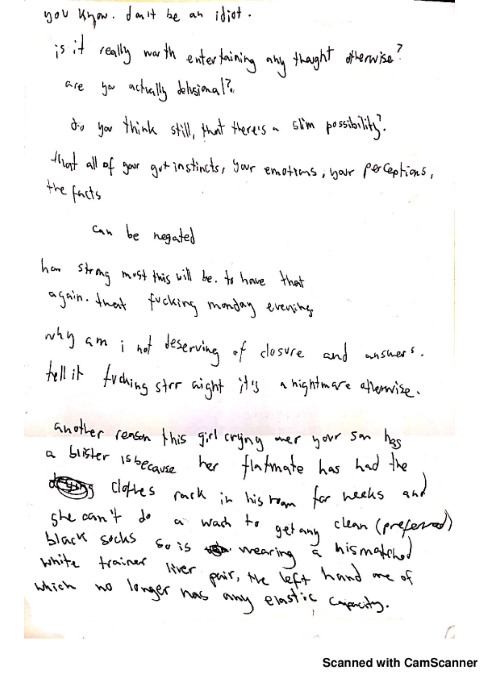 you know. don't be an idiot.
is it really worth entertaining any thought otherwise?
are you actually delusional?
do you think still, that there's a slim possibility?
that all of your gut instincts, your emotions, your perceptions,
the facts
can be negated
how strong must this will be. to have that
again. that fucking monday evening
why am i not deserving of closure and answers.
tell it fucking straight it's a nightmare otherwise.
another reason this girl crying over your son has
a blister is because her flatmate has had the
clothes rack in his room for weeks and
she can't do a wash to get any clean (preferred)
black socks so is wearing a mismatched
white trainer liner pair, the left hand one of
which no longer has any elastic capacity.
Scanned with CamScanner